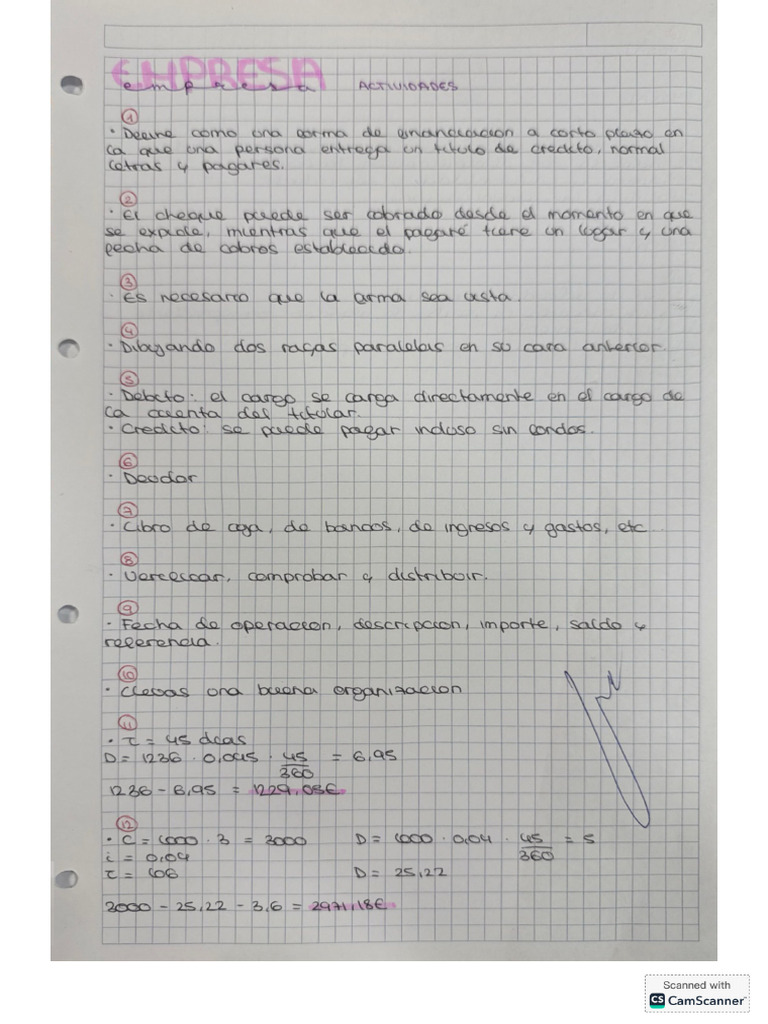 EMPRESA
empresa ACTIVIDADES
1
· Deeine como una corma de cinanciacion a corto plazo en
la que una persona entrega un titulo de credito, normal
letras y pagares.
2
· El cheque puede ser cobrado desde el momento en que
se expide, mientras que el pagaré tiene un lugar y una
fecha de cobros establecido.
3
· Es necesario que la firma sea vista.
4
· Dibujando dos rayas paralelas en su cara anterior.
5
· Debito: el cargo se carga directamente en el cargo de
la cuenta del titular.
· Credito: se puede pagar incluso sin fondos.
6
· Deudor
7
· Libro de caja, de bancos, de ingresos y gastos, etc
8
· Verificar, comprobar y distribuir.
9
· Fecha de operacion, descripcion, importe, saldo y
referencia.
10
· Llevas una buena organizacion
11
· t = 45 dias
D = 1236 · 0,045 · 45/360 = 6,95
1236 - 6,95 = 1229,05€
12
· C = 1000 · 3 = 3000 D = 1000 · 0,04 · 45/360 = 5
i = 0,04
t = 106 D = 25,22
3000 - 25,22 - 3,6 = 2971,18€
Scanned with
CS CamScanner